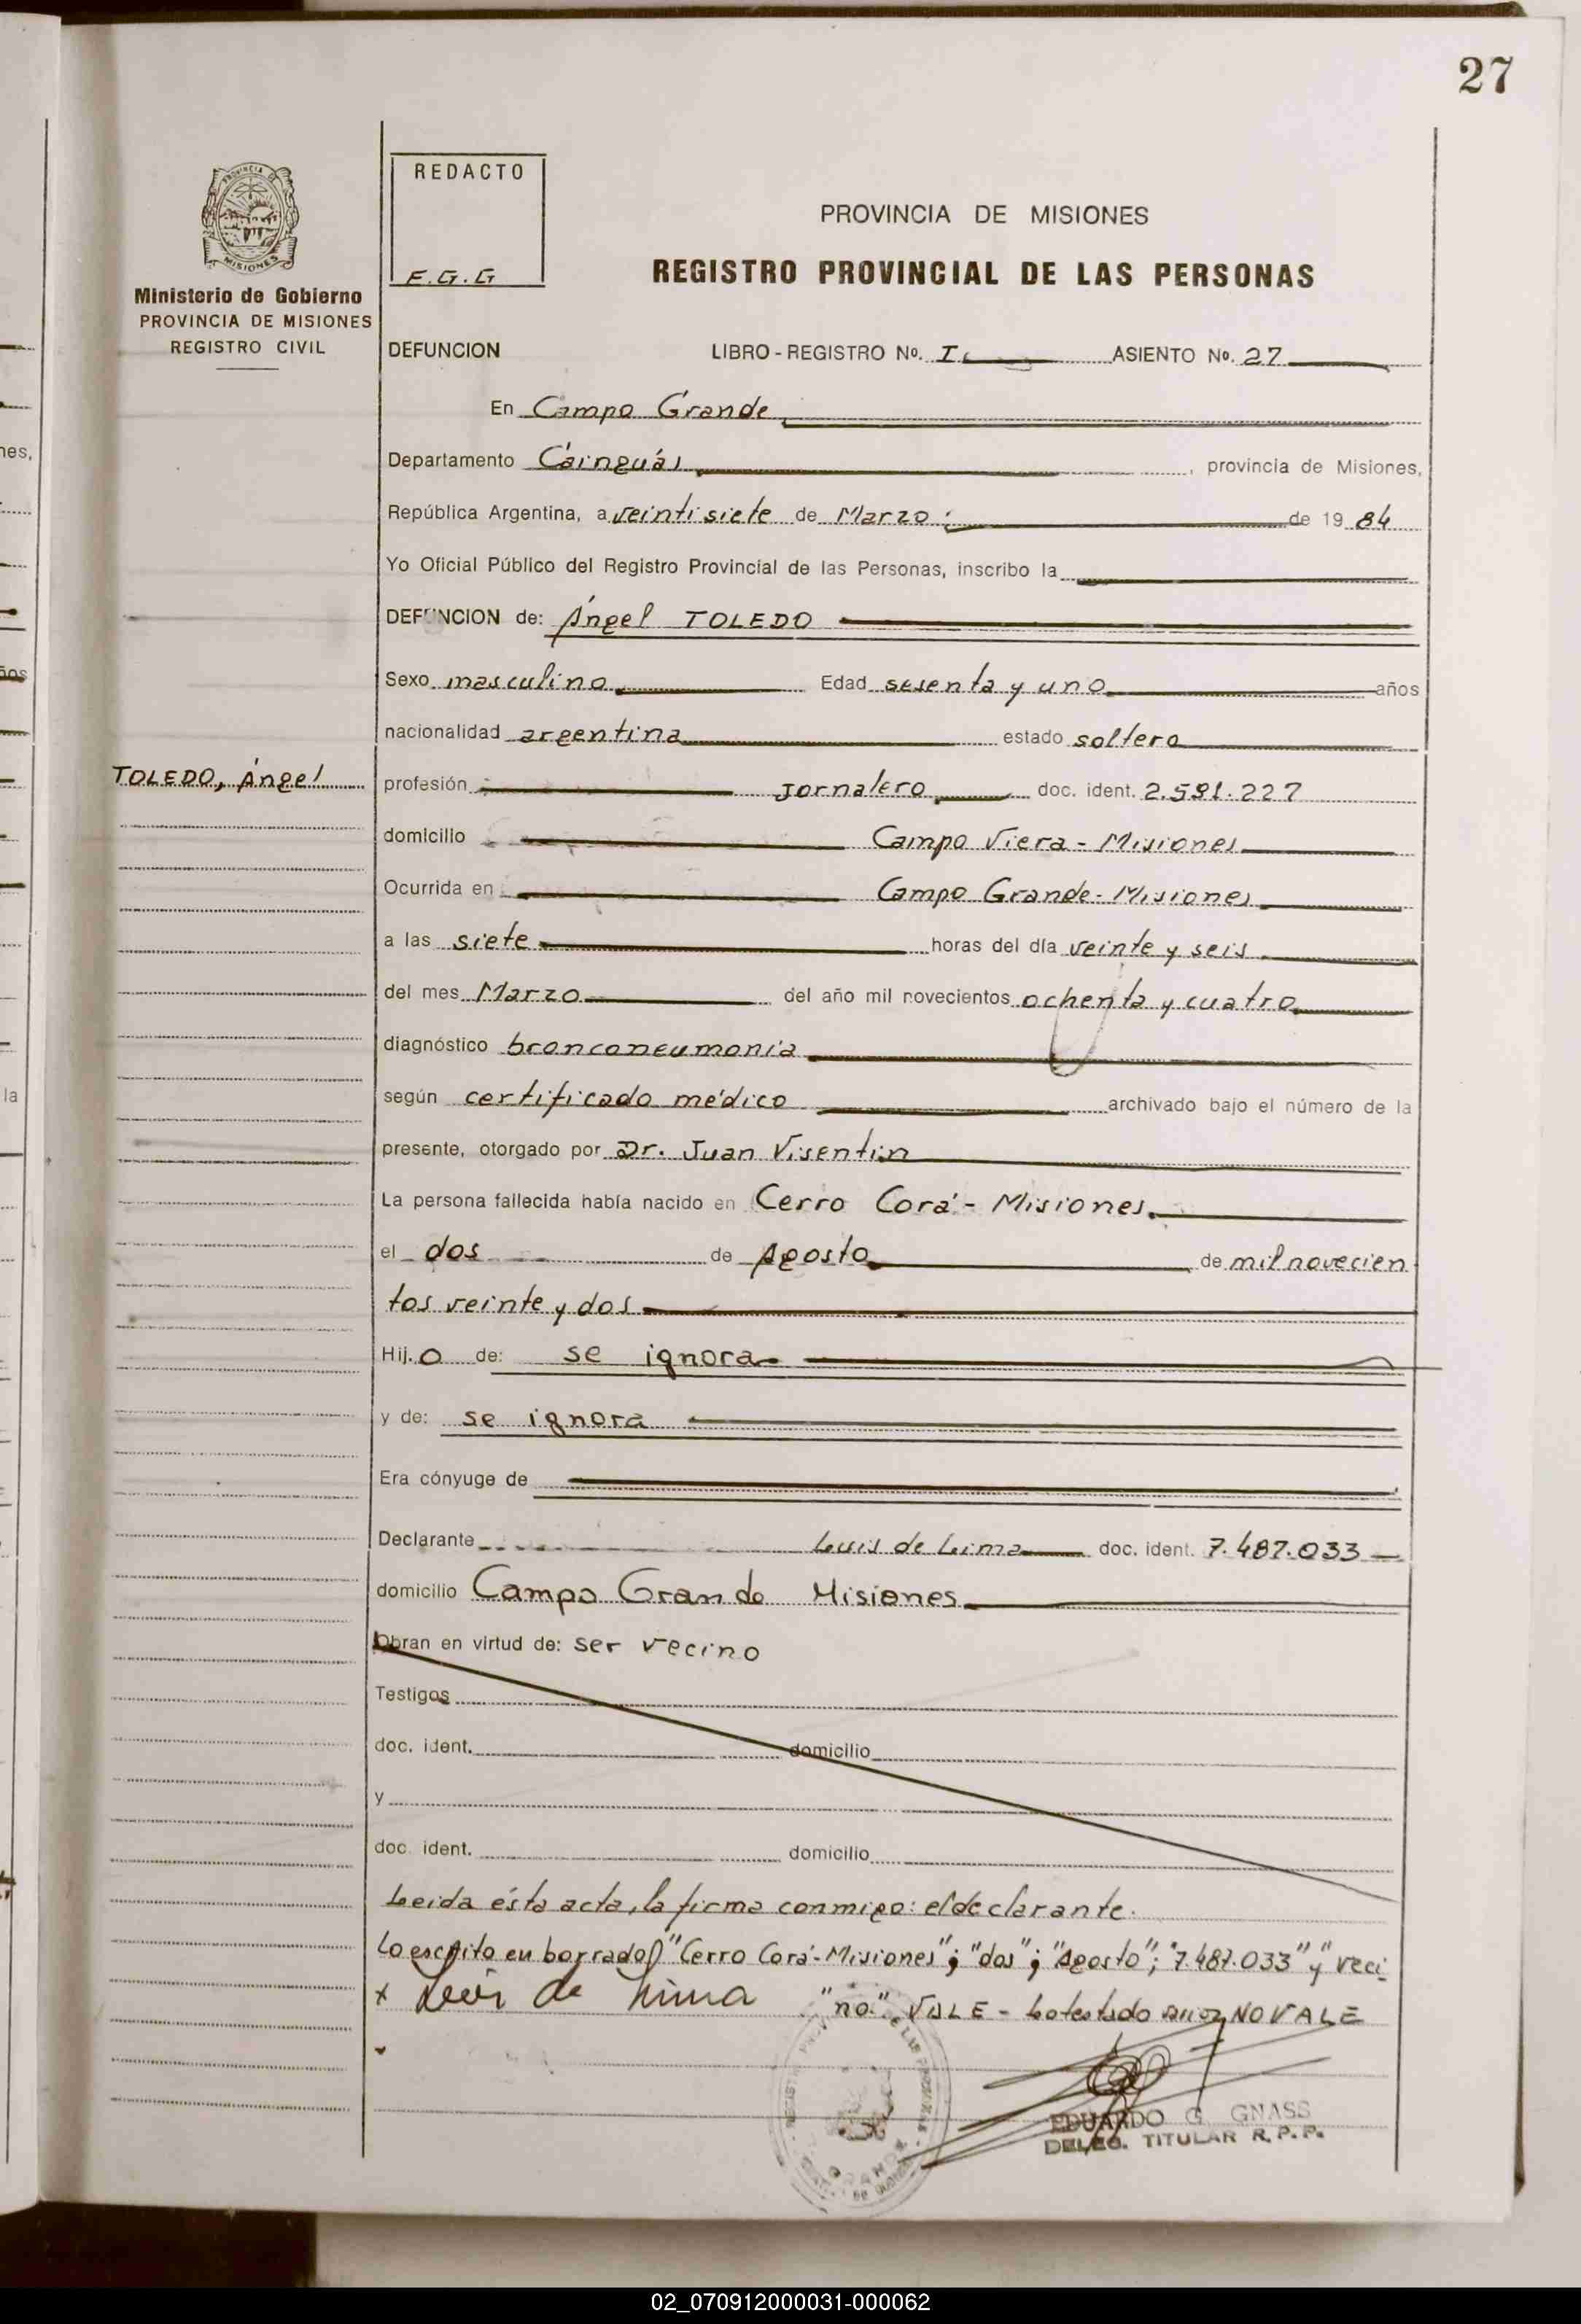 27
REDACTO
E.G.G
PROVINCIA DE MISIONES
REGISTRO PROVINCIAL DE LAS PERSONAS
MISIONES
Ministerio de Gobierno
PROVINCIA DE MISIONES
REGISTRO CIVIL
DEFUNCION LIBRO - REGISTRO Nº. I. ASIENTO Nº. 27
En Campo Grande
Departamento Cainguás, provincia de Misiones,
República Argentina, a veintisiete de Marzo de 19 84
Yo Oficial Público del Registro Provincial de las Personas, inscribo la
DEFUNCION de: Ángel TOLEDO
Sexo masculino Edad sesenta y uno años
nacionalidad argentina estado soltero
TOLEDO, Ángel
profesión Jornalero doc. ident. 2.591.227
domicilio Campo Viera - Misiones
Ocurrida en Campo Grande - Misiones
a las siete horas del día veinte y seis
del mes Marzo del año mil novecientos ochenta y cuatro
diagnóstico bronconeumonia
según certificado médico archivado bajo el número de la
presente, otorgado por Dr. Juan Visentin
La persona fallecida había nacido en Cerro Corá - Misiones.
el dos de Agosto de mil novecien
tos veinte y dos
Hij o de: se ignora
y de: se ignora
Era cónyuge de
Declarante Luis de Lima doc. ident. 7.487.033
domicilio Campo Grande Misiones
Obran en virtud de: ser vecino
Testigos
doc. ident. domicilio
y
doc. ident. domicilio
Leida ésta acta, la firma conmigo: el declarante.
Lo escrito en borrado "Cerro Corá - Misiones"; "dos"; "Agosto"; "7.487.033" y "veci
x Luis de Lima "no" VALE - Lo testado NO VALE
EDUARDO G. GNASS
DELEG. TITULAR R.P.P.
02_070912000031-000062